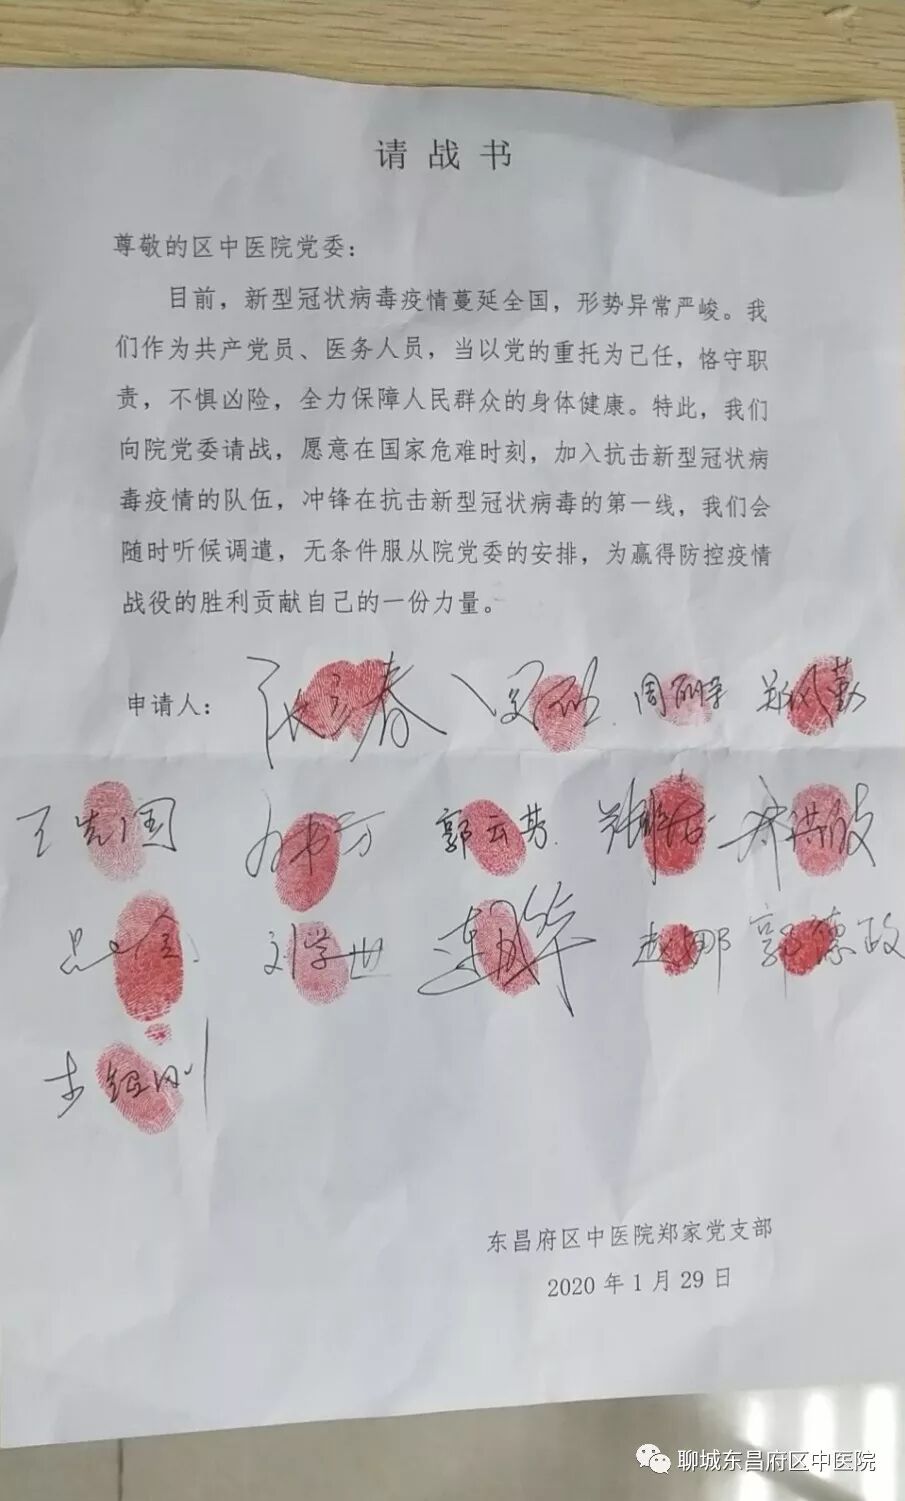 请战书
尊敬的区中医院党委：
目前，新型冠状病毒疫情蔓延全国，形势异常严峻。我
们作为共产党员、医务人员，当以党的重托为己任，恪守职
责，不惧凶险，全力保障人民群众的身体健康。特此，我们
向院党委请战，愿意在国家危难时刻，加入抗击新型冠状病
毒疫情的队伍，冲锋在抗击新型冠状病毒的第一线，我们会
随时听候调遣，无条件服从院党委的安排，为赢得防控疫情
战役的胜利贡献自己的一份力量。
申请人：
郭云芳
刘学世 赵娜 郭德政
东昌府区中医院郑家党支部
2020年1月29日
聊城东昌府区中医院